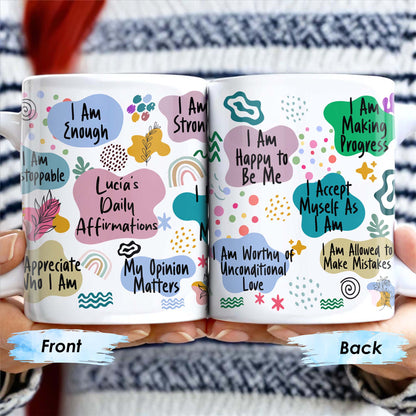 I Am
Enough
I Am
Stron
Am
stoppable
Lucia's
Daily
Affirmations
I
Appreciate
Who I Am
My Opinion
Matters
I Am
Happy to
Be Me
I Am
Making
Progress
I Accept
Myself As
I Am
I Am Worthy of
Unconditional
Love
I Am Allowed to
Make Mistakes
Front
Back